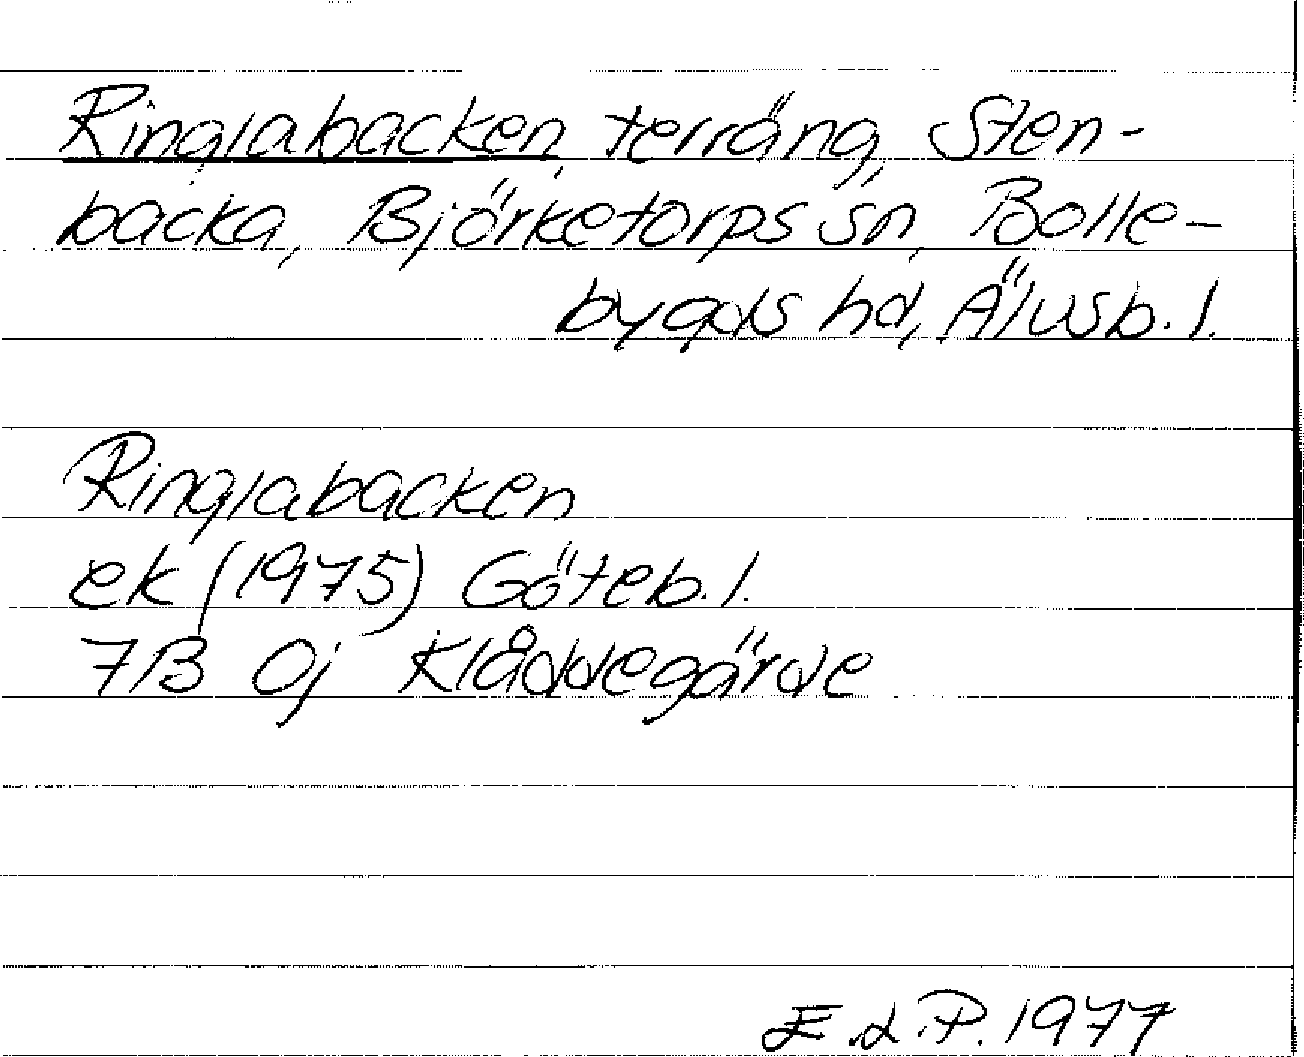 Ringlabacken, terräng, Sten-
backa, Björketorps sn, Bolle-
bygds hd, Älvsb. l.
Ringlabacken
ek (1975) Göteb. l.
7B 0j Klåddegärde
E.L.P. 1977